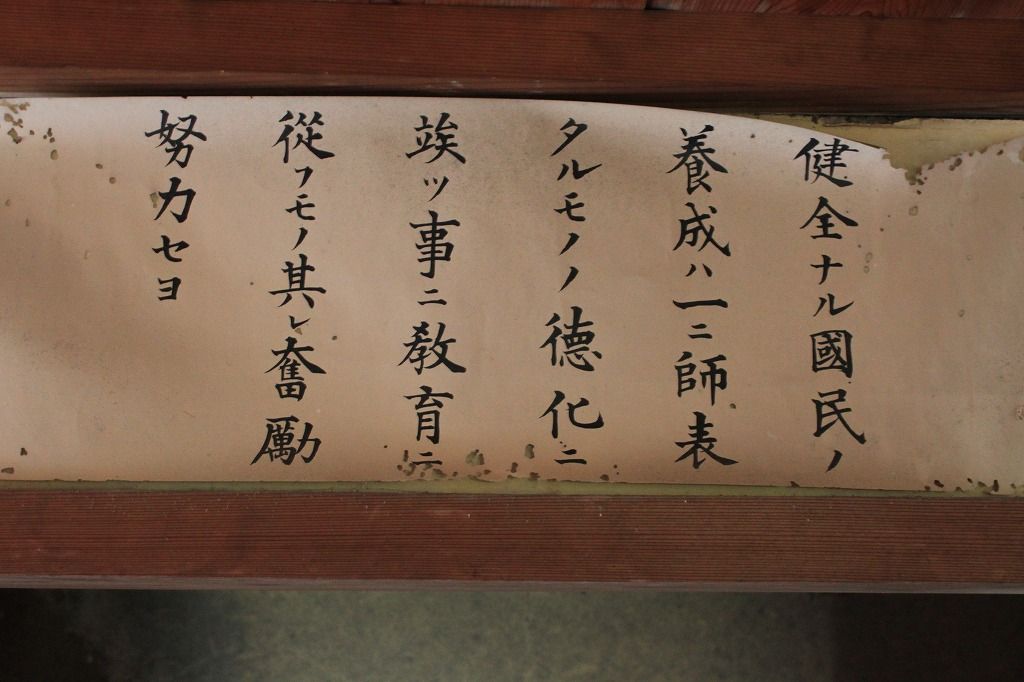 健全ナル國民ノ
養成ハ一ニ師表
タルモノノ德化ニ
竢ツ事ニ教育ニ
從フモノ其レ奮励
努力セヨ